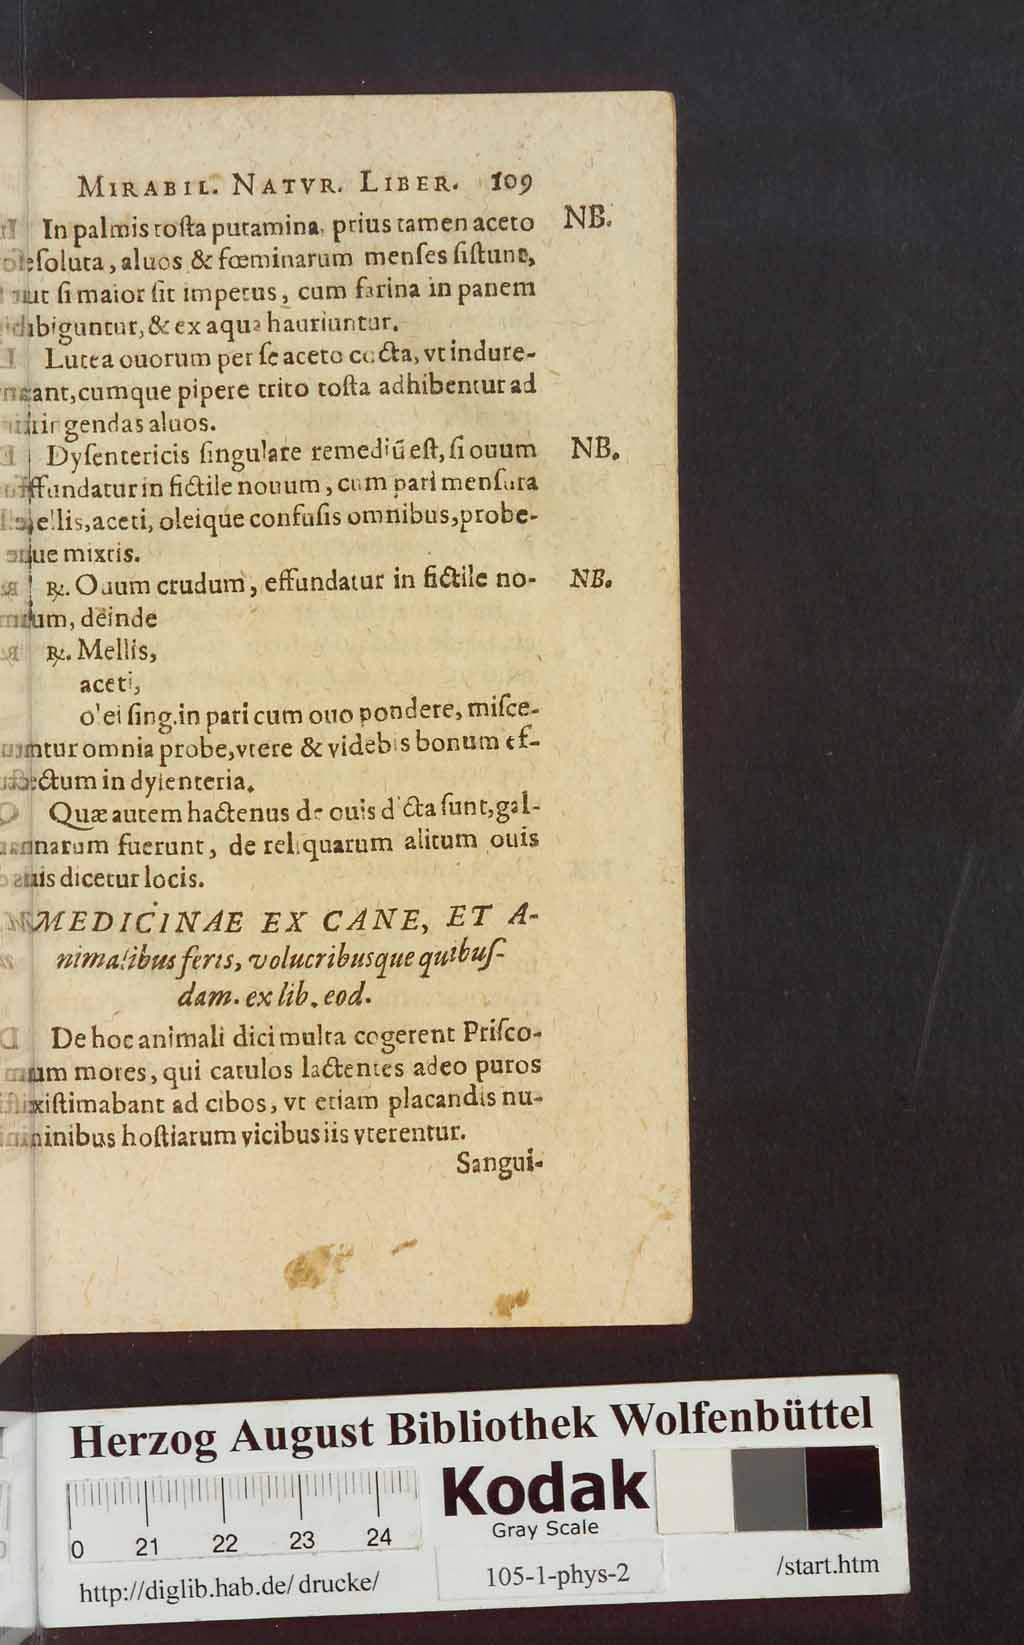 MIRABIL. NATVR. LIBER. 109
In palmis tosta putamina, prius tamen aceto NB.
ſoluta, aluos & fœminarum menſes ſiſtunt,
aut ſi maior ſit impetus, cum farina in panem
ſubiguntur, & ex aqua hauriuntur.
Lutea ouorum per ſe aceto cocta, vt indure-
ant, cumque pipere trito toſta adhibentur ad
ſtringendas aluos.
Dyſentericis ſingulare remediũ eſt, ſi ouum NB.
effundatur in fictile nouum, cum pari menſura
mellis, aceti, oleique confuſis omnibus, probe-
que mixtis.
℞. Ouum crudum, effundatur in fictile no- NB.
uum, deinde
℞. Mellis,
aceti,
olei ſing. in pari cum ouo pondere, miſce-
antur omnia probe, vtere & videbis bonum ef-
fectum in dyſenteria.
Quæ autem hactenus de ouis dicta ſunt, gal-
linarum fuerunt, de reliquarum alitum ouis
ſuis dicetur locis.
MEDICINAE EX CANE, ET A-
nimalibus feris, volucribusque quibuſ-
dam. ex lib. eod.
De hoc animali dici multa cogerent Priſco-
rum mores, qui catulos lactentes adeo puros
exiſtimabant ad cibos, vt etiam placandis nu-
minibus hoſtiarum vicibus iis vterentur.
Sangui-
Herzog August Bibliothek Wolfenbüttel
0 21 22 23 24
Kodak
Gray Scale
http://diglib.hab.de/drucke/ 105-1-phys-2 /start.htm